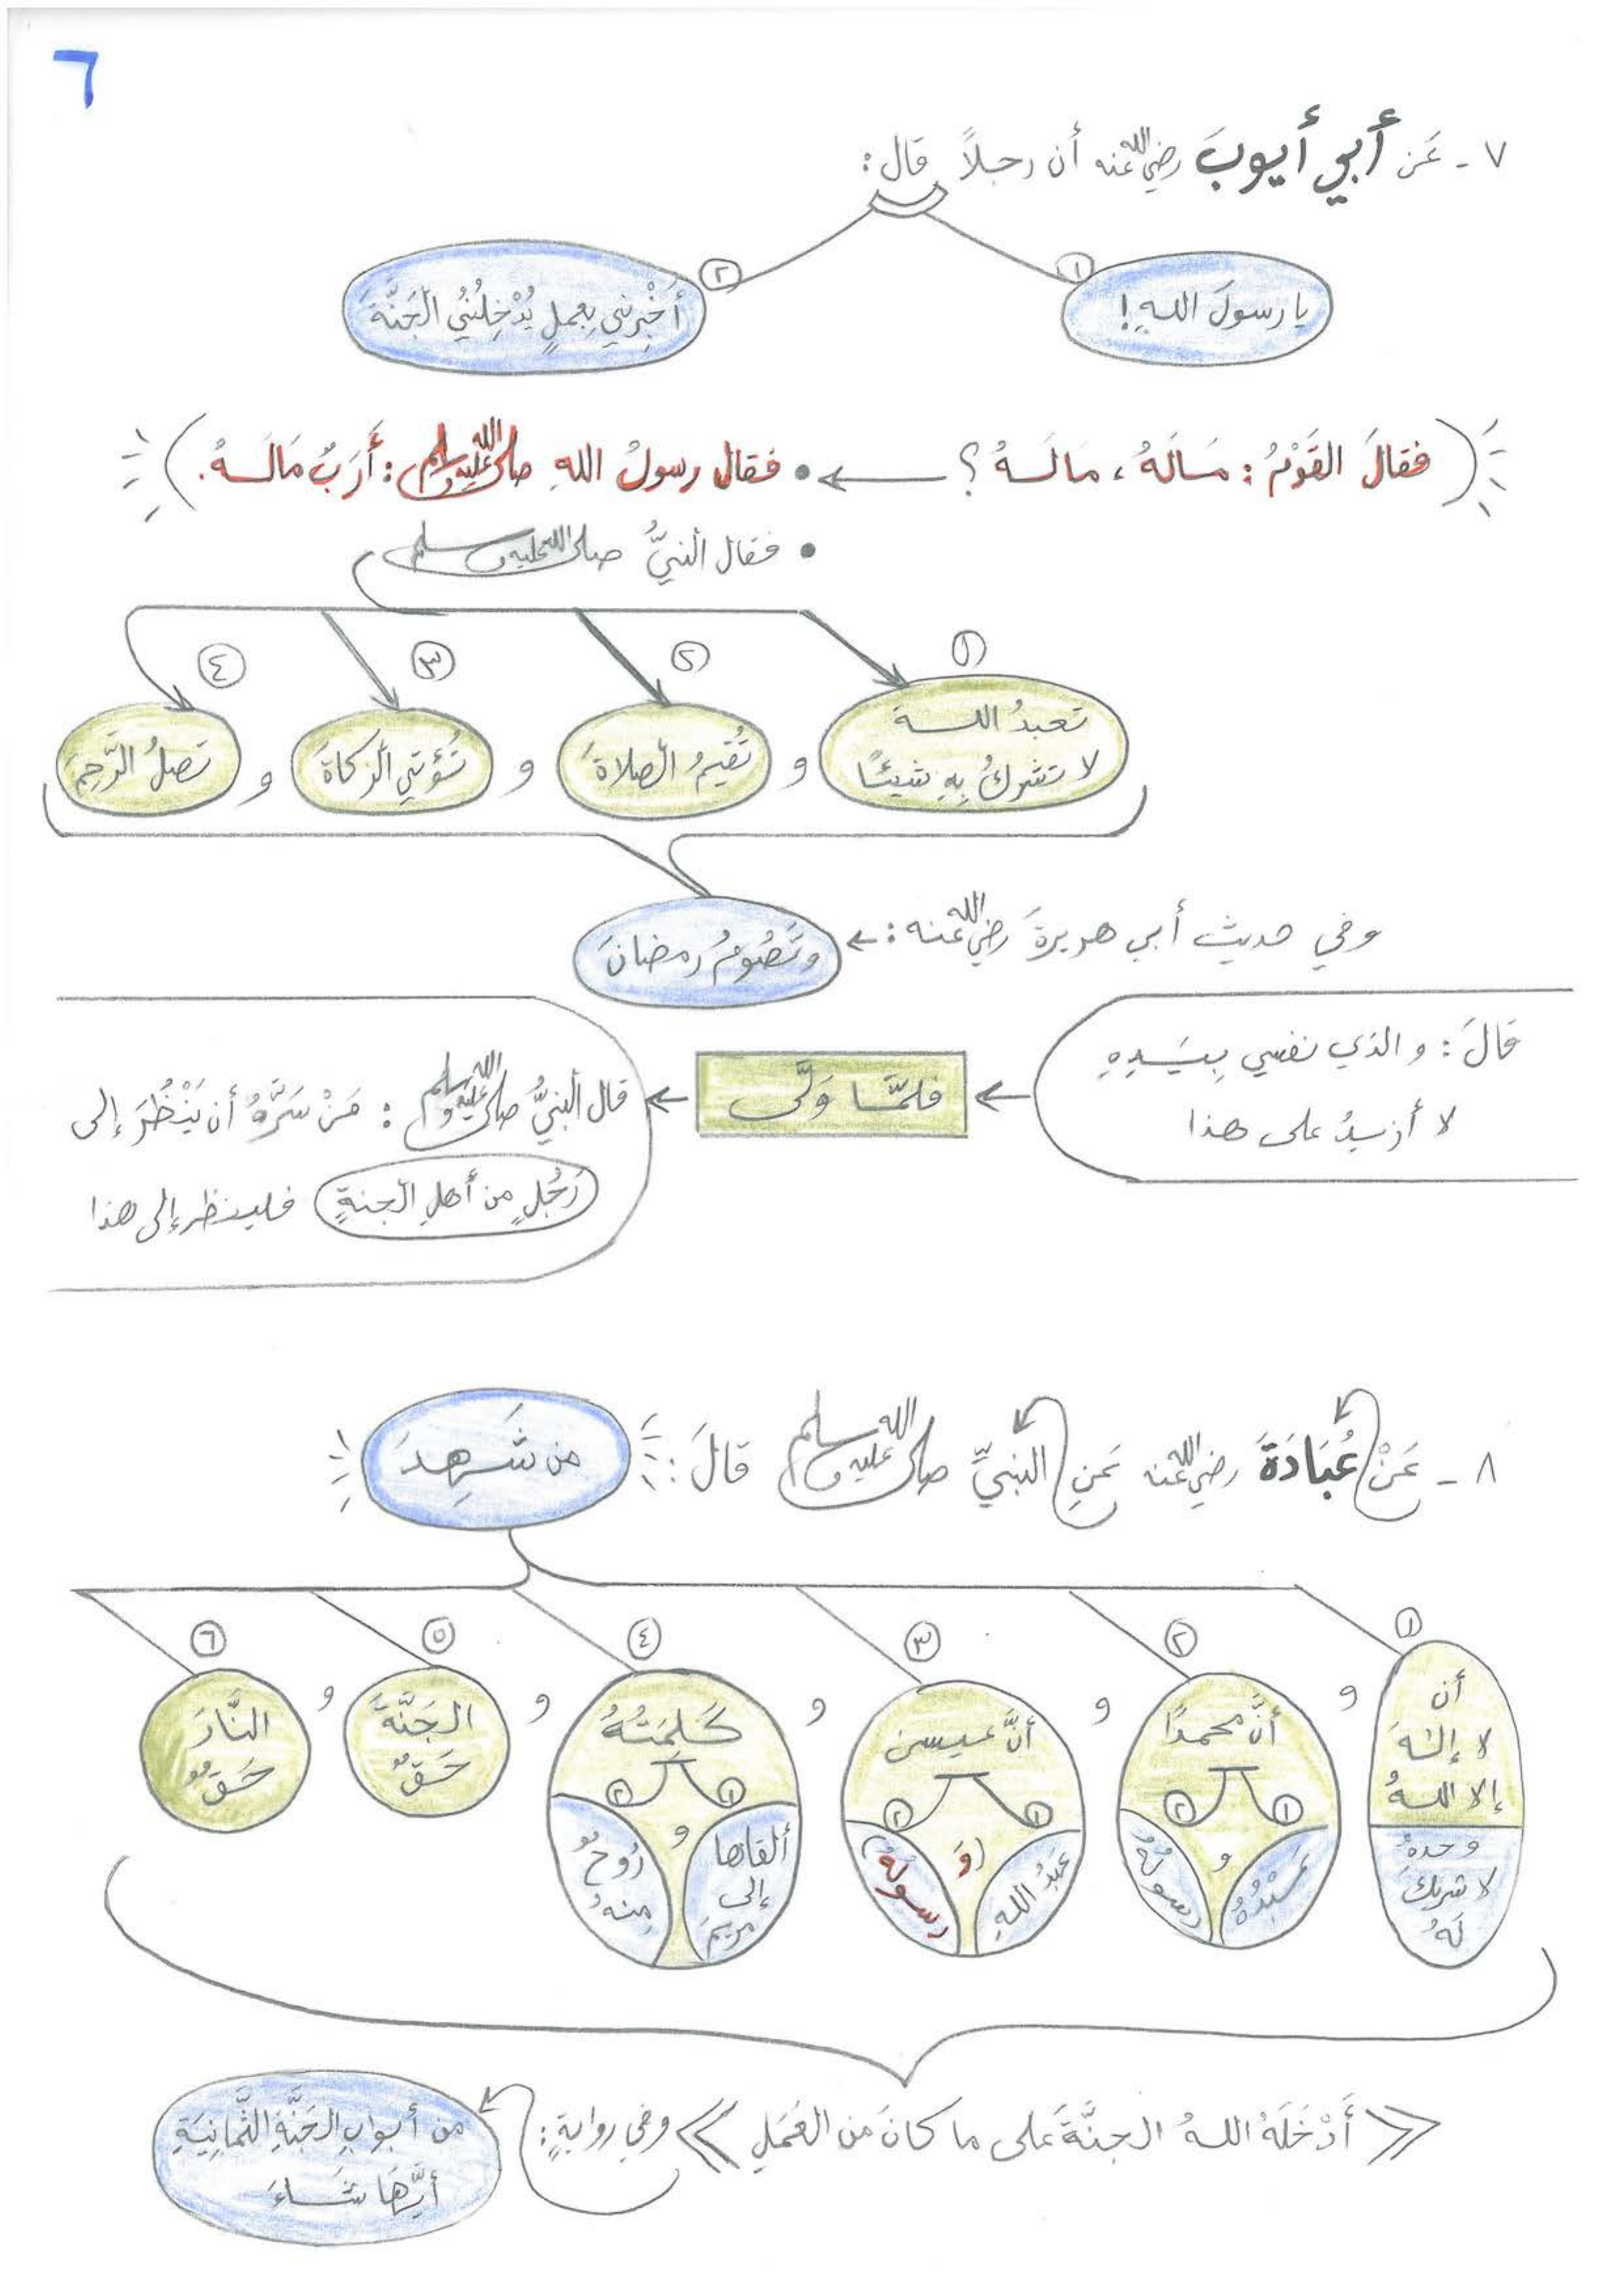 ٦
٧ - عَن أَبي أَيوبَ رضي الله عنه أن رجلاً قال:
١
يا رسولَ اللهِ!
٢
أَخْبِرْني بِعملٍ يُدْخِلُنيُ الجَنَّةَ
(فقالَ القَوْمُ: مَالَهُ، مَالَهُ؟ ← • فقال رسولُ اللهِ صلى الله عليه وسلم: أَرَبٌ مَالَهُ.)
• فقال النبيُّ صلى الله عليه وسلم
١
تعبدُ اللـه
لا تشركُ بِهِ شيئًا
و
٢
تُقيمُ الصلاةَ
و
٣
تُؤتي الزكاةَ
و
٤
تصلُ الرَّحِمَ
وفي حديث أبي هريرةَ رضي الله عنه: ←
وتَصُومُ رمضانَ
قالَ: والذي نفسي بِيَدِهِ
لا أزيدُ على هذا
← فلمَّا وَلَّى ←
قال النبيُّ صلى الله عليه وسلم: مَنْ سَرَّهُ أن يَنْظُرَ إلى
رَجُلٍ من أهلِ الجنةِ فلينظر إلى هذا
٨ - عَنْ عُبَادَةَ رضي الله عنه عَنِ النبيِّ صلى الله عليه وسلم قالَ:
من شَهِدَ
١
أن
لا إلٰهَ
إلا اللـهُ
وحدهُ
لا شريكَ
لَهُ
و
٢
أنَّ محمدًا
١
عَبْدُهُ
و
٢
رسولُهُ
و
٣
أنَّ عيسى
١
عبدُ اللهِ
(وَ
٢
رسولُهُ)
و
٤
كَلِمَتُهُ
١
ألقاها
إلى
مريمَ
و
٢
رُوحٌ
منهُ
و
٥
الجَنَّةَ
حَقٌّ
و
٦
النَّارَ
حَقٌّ
《أَدْخَلَهُ اللـهُ الجنَّةَ على ما كانَ من العَمَلِ》 وفي روايةٍ:
من أبوابِ الجَنَّةِ الثَّمانِيَةِ
أيِّهَا شَاءَ